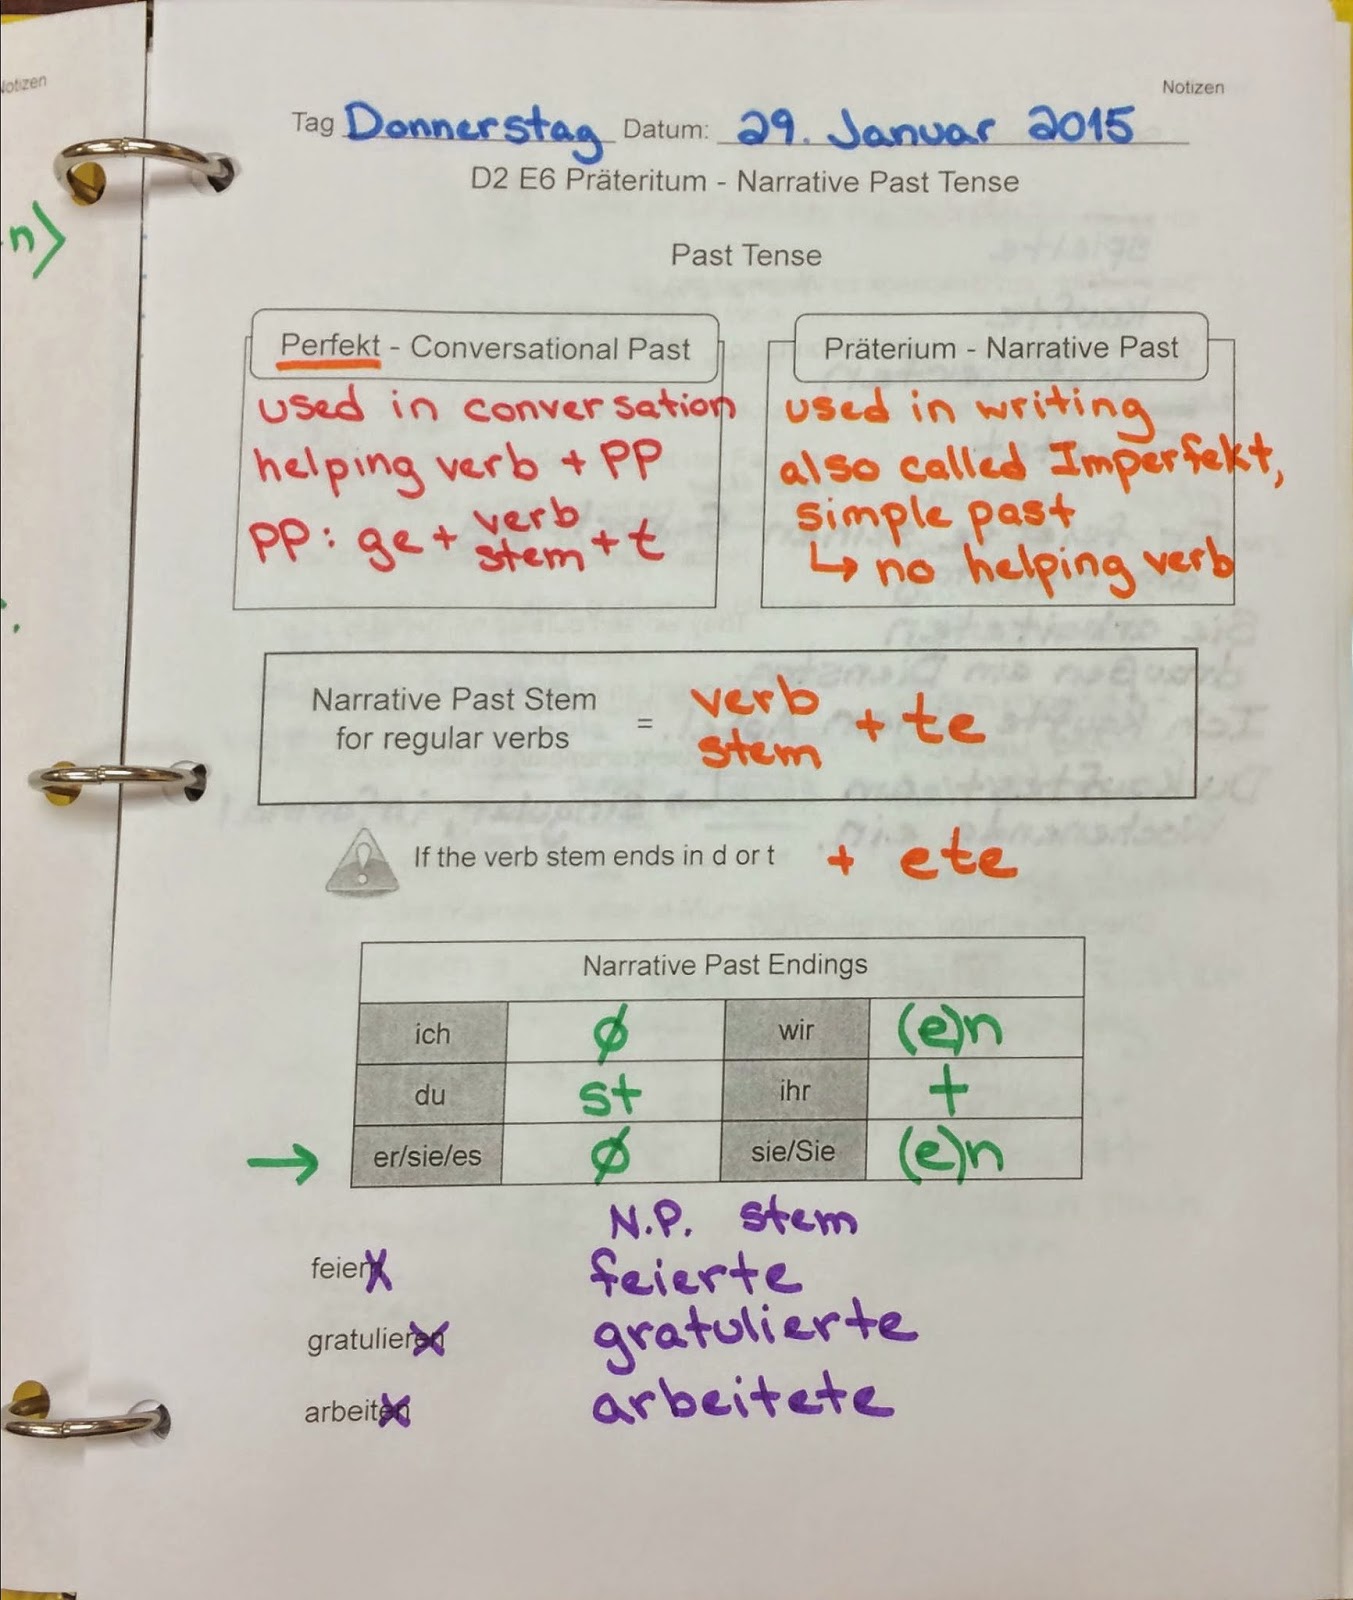 Notizen
Notizen
Tag Donnerstag Datum: 29. Januar 2015
D2 E6 Präteritum - Narrative Past Tense
n)
Past Tense
Perfekt - Conversational Past
used in conversation
helping verb + PP
PP: ge + verb stem + t
Präterium - Narrative Past
used in writing
also called Imperfekt,
simple past
↳ no helping verb
Narrative Past Stem
for regular verbs
= verb stem + te
If the verb stem ends in d or t + ete
Narrative Past Endings
ich ∅ wir (e)n
du st ihr t
→ er/sie/es ∅ sie/Sie (e)n
N.P. stem
feiern feierte
gratulieren gratulierte
arbeiten arbeitete